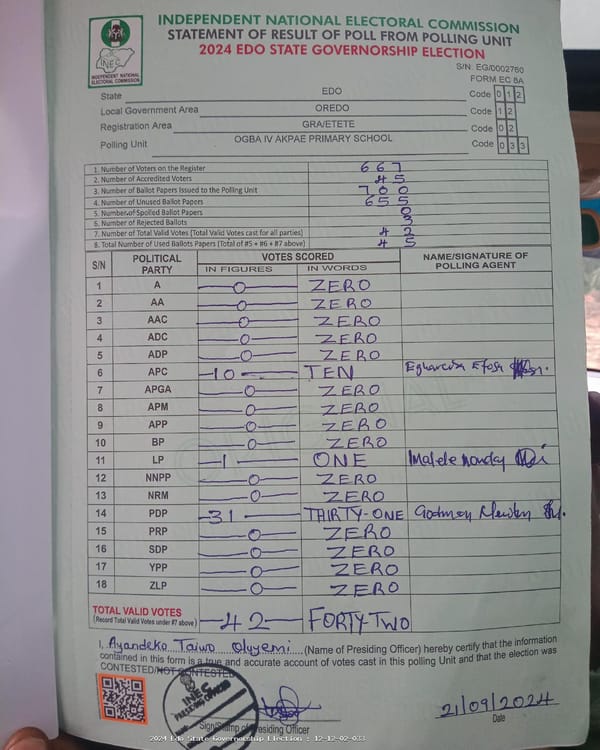 INDEPENDENT NATIONAL ELECTORAL COMMISSION
STATEMENT OF RESULT OF POLL FROM POLLING UNIT
2024 EDO STATE GOVERNORSHIP ELECTION
INEC
INDEPENDENT NATIONAL ELECTORAL COMMISSION
S/N: EG/0002760
FORM EC 8A
State EDO Code 0 1 2
Local Government Area OREDO Code 1 2
Registration Area GRA/ETETE Code 0 2
Polling Unit OGBA IV AKPAE PRIMARY SCHOOL Code 0 3 3
1. Number of Voters on the Register 667
2. Number of Accredited Voters 45
3. Number of Ballot Papers Issued to the Polling Unit 700
4. Number of Unused Ballot Papers 655
5. Number of Spoiled Ballot Papers 0
6. Number of Rejected Ballots 3
7. Number of Total Valid Votes (Total Valid Votes cast for all parties) 42
8. Total Number of Used Ballots Papers (Total of #5 + #6 + #7 above) 45
S/N POLITICAL PARTY VOTES SCORED NAME/SIGNATURE OF POLLING AGENT
IN FIGURES IN WORDS
1 A 0 ZERO
2 AA 0 ZERO
3 AAC 0 ZERO
4 ADC 0 ZERO
5 ADP 0 ZERO
6 APC 10 TEN Efosa
7 APGA 0 ZERO
8 APM 0 ZERO
9 APP 0 ZERO
10 BP 0 ZERO
11 LP 1 ONE
12 NNPP 0 ZERO
13 NRM 0 ZERO
14 PDP 31 THIRTY-ONE
15 PRP 0 ZERO
16 SDP 0 ZERO
17 YPP 0 ZERO
18 ZLP 0 ZERO
TOTAL VALID VOTES
(Record Total Valid Votes under #7 above) 42 FORTY TWO
I, Ayandeko Taiwo Oluyemi (Name of Presiding Officer) hereby certify that the information
contained in this form is a true and accurate account of votes cast in this polling Unit and that the election was
CONTESTED/NOT CONTESTED
INEC
PRESIDING OFFICER
Sign/Stamp of Presiding Officer
21/09/2024
Date
2024 Edo State Governorship Election : 12-12-02-033